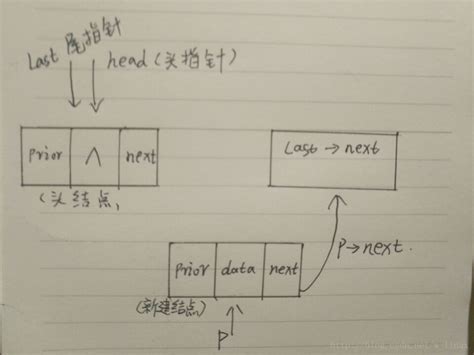 Last 尾指针
head (头指针)
prior ∧ next
(头结点)
Last→next
p→next.
prior data next
(新建结点)
p